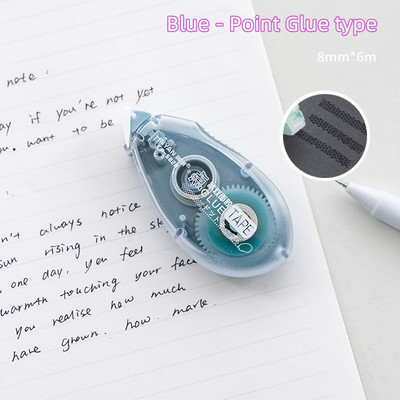 Blue - Point Glue type
8mm*6m
note.
ay if you're not yet
you. want to be
GLUE
TAPE
n't always notice
sun rising in the sk
one day, you feel
warmth touching your face
you realise how much
have grown. how. mark.